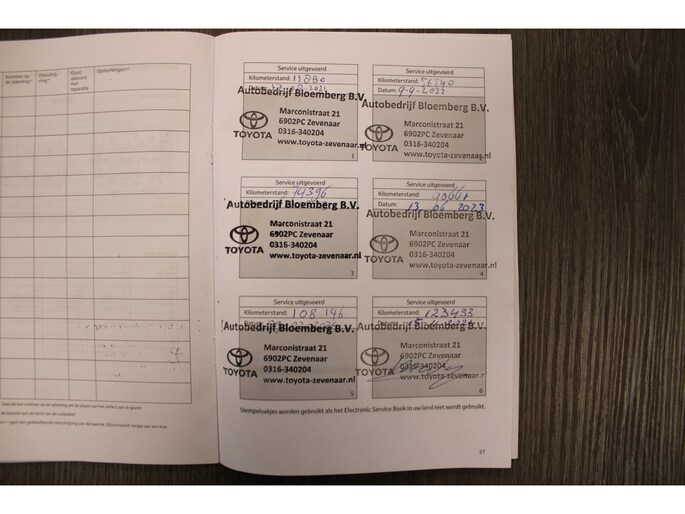 Nummer op
de tekening**
Omschrij-
ving**
Klant
akkoord
met
reparatie
Opmerkingen**
Service uitgevoerd
Kilometerstand: 11880
Datum:
Autobedrijf Bloemberg B.V.
Marconistraat 21
6902PC Zevenaar
0316-340204
www.toyota-zevenaar.nl
TOYOTA
1
Service uitgevoerd
Kilometerstand: 56340
Datum: 9-9-2022
Autobedrijf Bloemberg B.V.
Marconistraat 21
6902PC Zevenaar
0316-340204
www.toyota-zevenaar.nl
TOYOTA
Service uitgevoerd
Kilometerstand: 74396
Autobedrijf Bloemberg B.V.
Marconistraat 21
6902PC Zevenaar
0316-340204
www.toyota-zevenaar.nl
TOYOTA
3
Service uitgevoerd
Kilometerstand:
Datum: 13 06 2023
Autobedrijf Bloemberg B.V.
Marconistraat 21
6902PC Zevenaar
0316-340204
www.toyota-zevenaar.nl
TOYOTA
4
Service uitgevoerd
Kilometerstand: 108 146
Autobedrijf Bloemberg B.V.
Marconistraat 21
6902PC Zevenaar
0316-340204
www.toyota-zevenaar.nl
TOYOTA
5
Service uitgevoerd
Kilometerstand: 123433
Autobedrijf Bloemberg B.V.
Marconistraat 21
6902PC Zevenaar
0316-340204
www.toyota-zevenaar.n
TOYOTA
6
Stempelvakjes worden gebruikt als het Electronic Service Book in uw land niet wordt gebruikt.
27